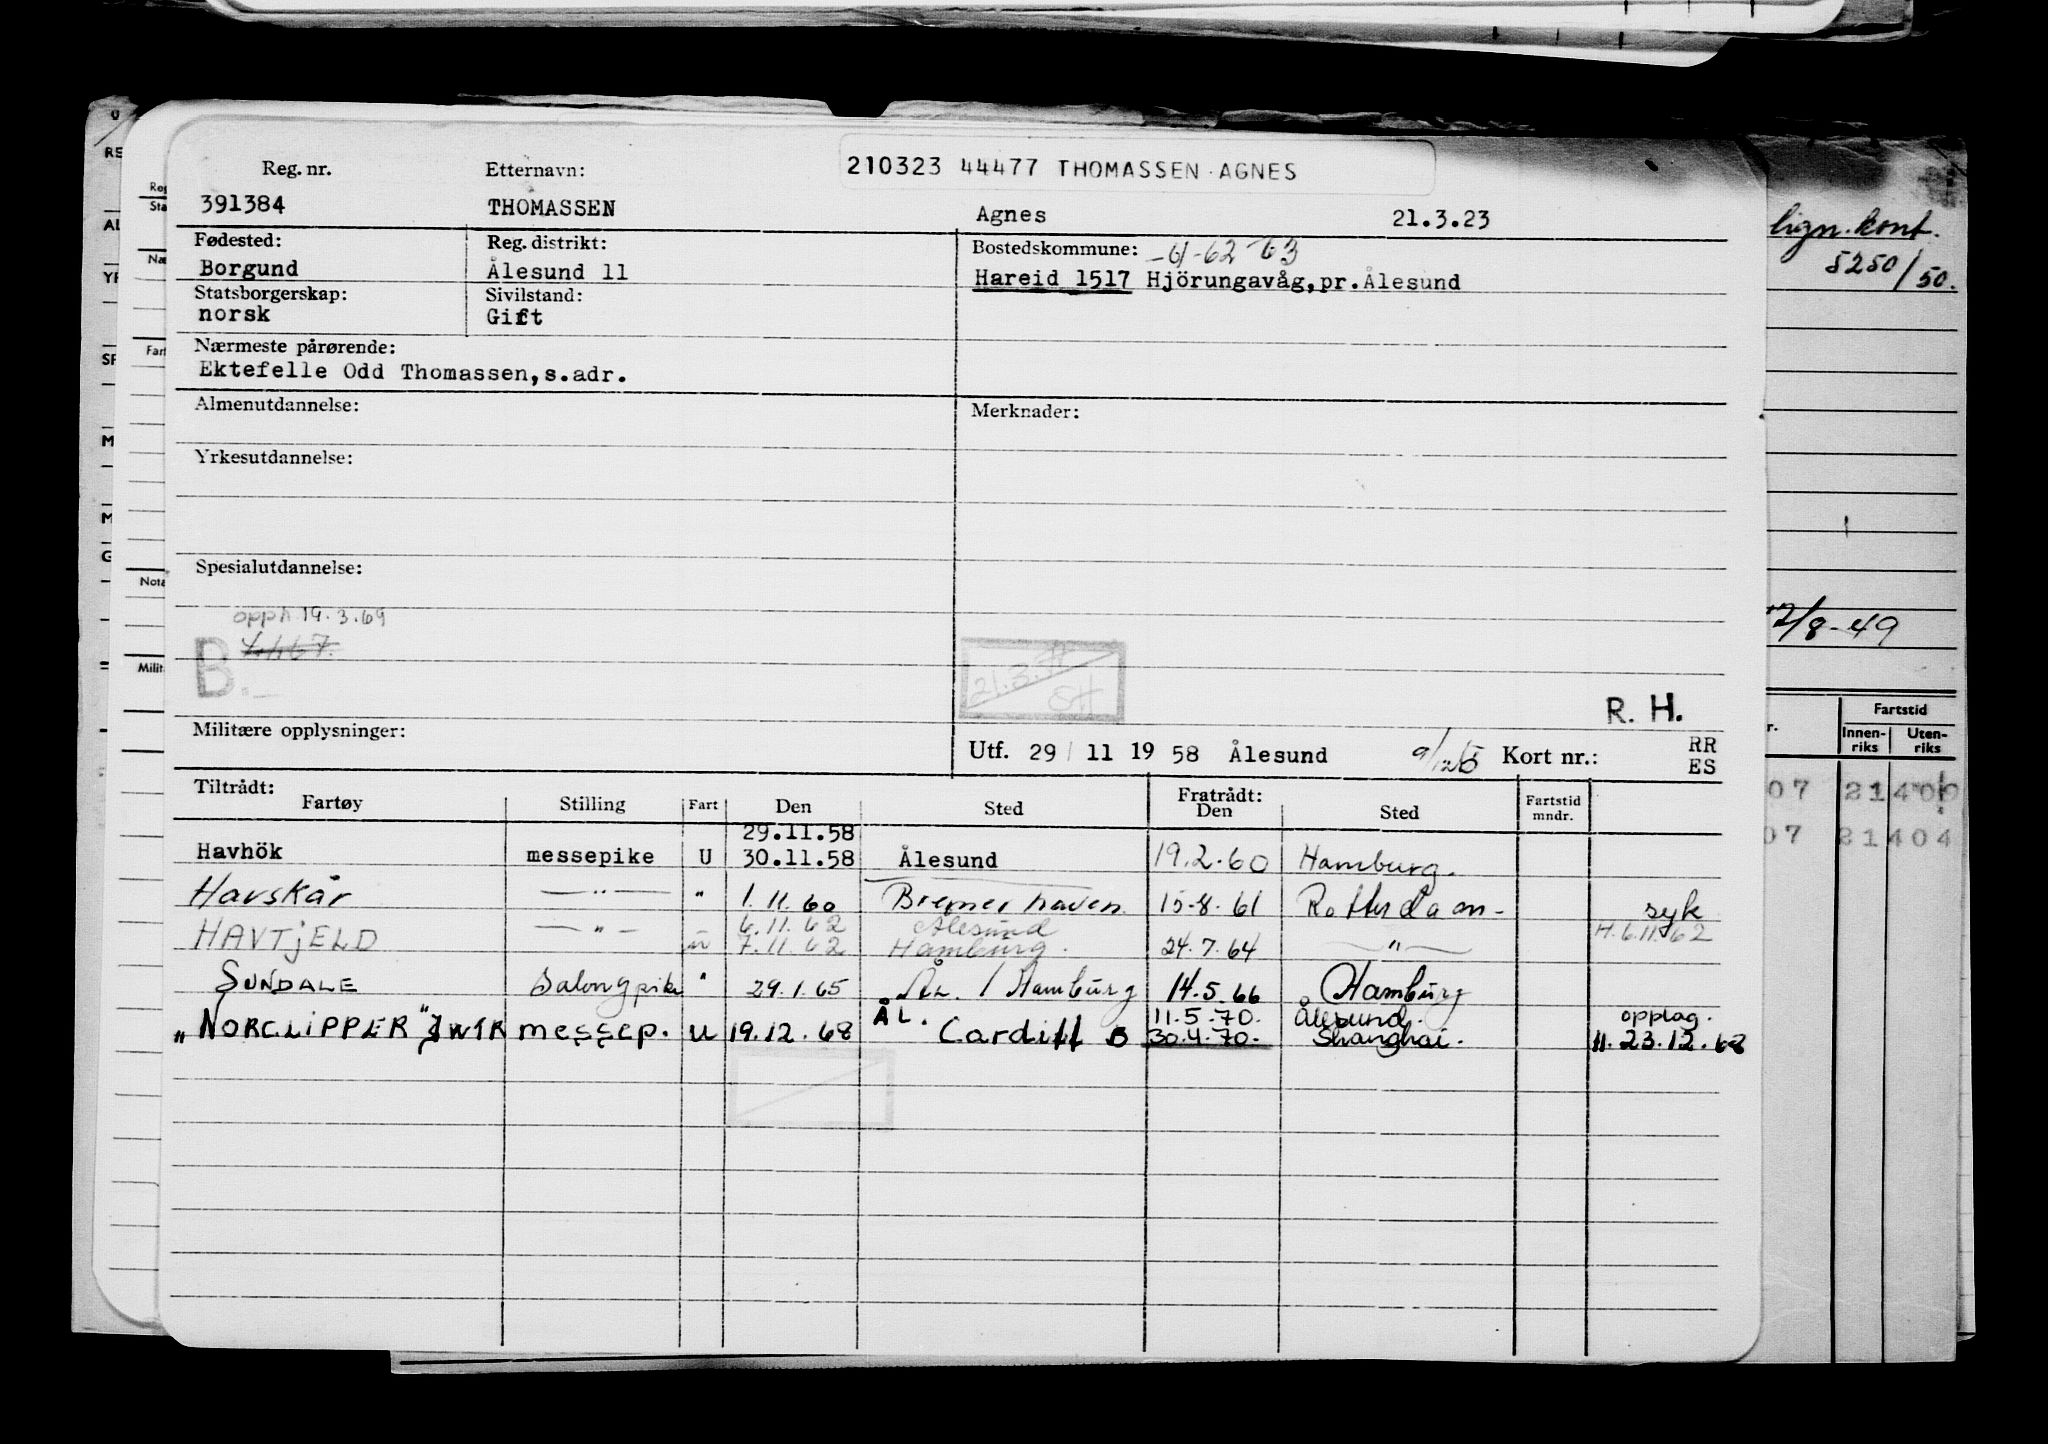 210323 44477 THOMASSEN AGNES
Reg. nr. Etternavn:
391384 THOMASSEN Agnes 21.3.23
Fødested: Reg. distrikt: Bostedskommune: -61-62-63
Borgund Ålesund 11 Hareid 1517 Hjörungavåg, pr. Ålesund
Statsborgerskap: Sivilstand:
norsk Gift
Nærmeste pårørende:
Ektefelle Odd Thomassen, s.adr.
Almenutdannelse: Merknader:
Yrkesutdannelse:
Spesialutdannelse:
opph 19.3.69
B.
21.3.
R. H.
Militære opplysninger: Utf. 29/11 1958 Ålesund Kort nr.: RR
ES
Tiltrådt: Fratrådt:
Fartøy Stilling Fart Den Sted Den Sted Fartstid mndr.
29.11.58
Havhök messepike U 30.11.58 Ålesund 19.2.60 Hamburg.
Havskår — " — " 1.11.60 Bremerhaven 15.8.61 Rotterdam - syk
6.11.62 Ålesund H. 6.11.62
HAVTJELD — " — " 7.11.62 Hamburg. 24.7.64 — " —
SUNDALE Salongpike " 29.1.65 Ål. / Hamburg 14.5.66 Hamburg
ÅL. 11.5.70. Ålesund. opplag.
"NORCLIPPER" messep. U 19.12.68 Cardiff B 30.4.70. Shanghai. 11.23.12.68
lign. kont.
5250/50.
12/8-49
Fartstid
Innen-riks Uten-riks
07 21400
07 21404